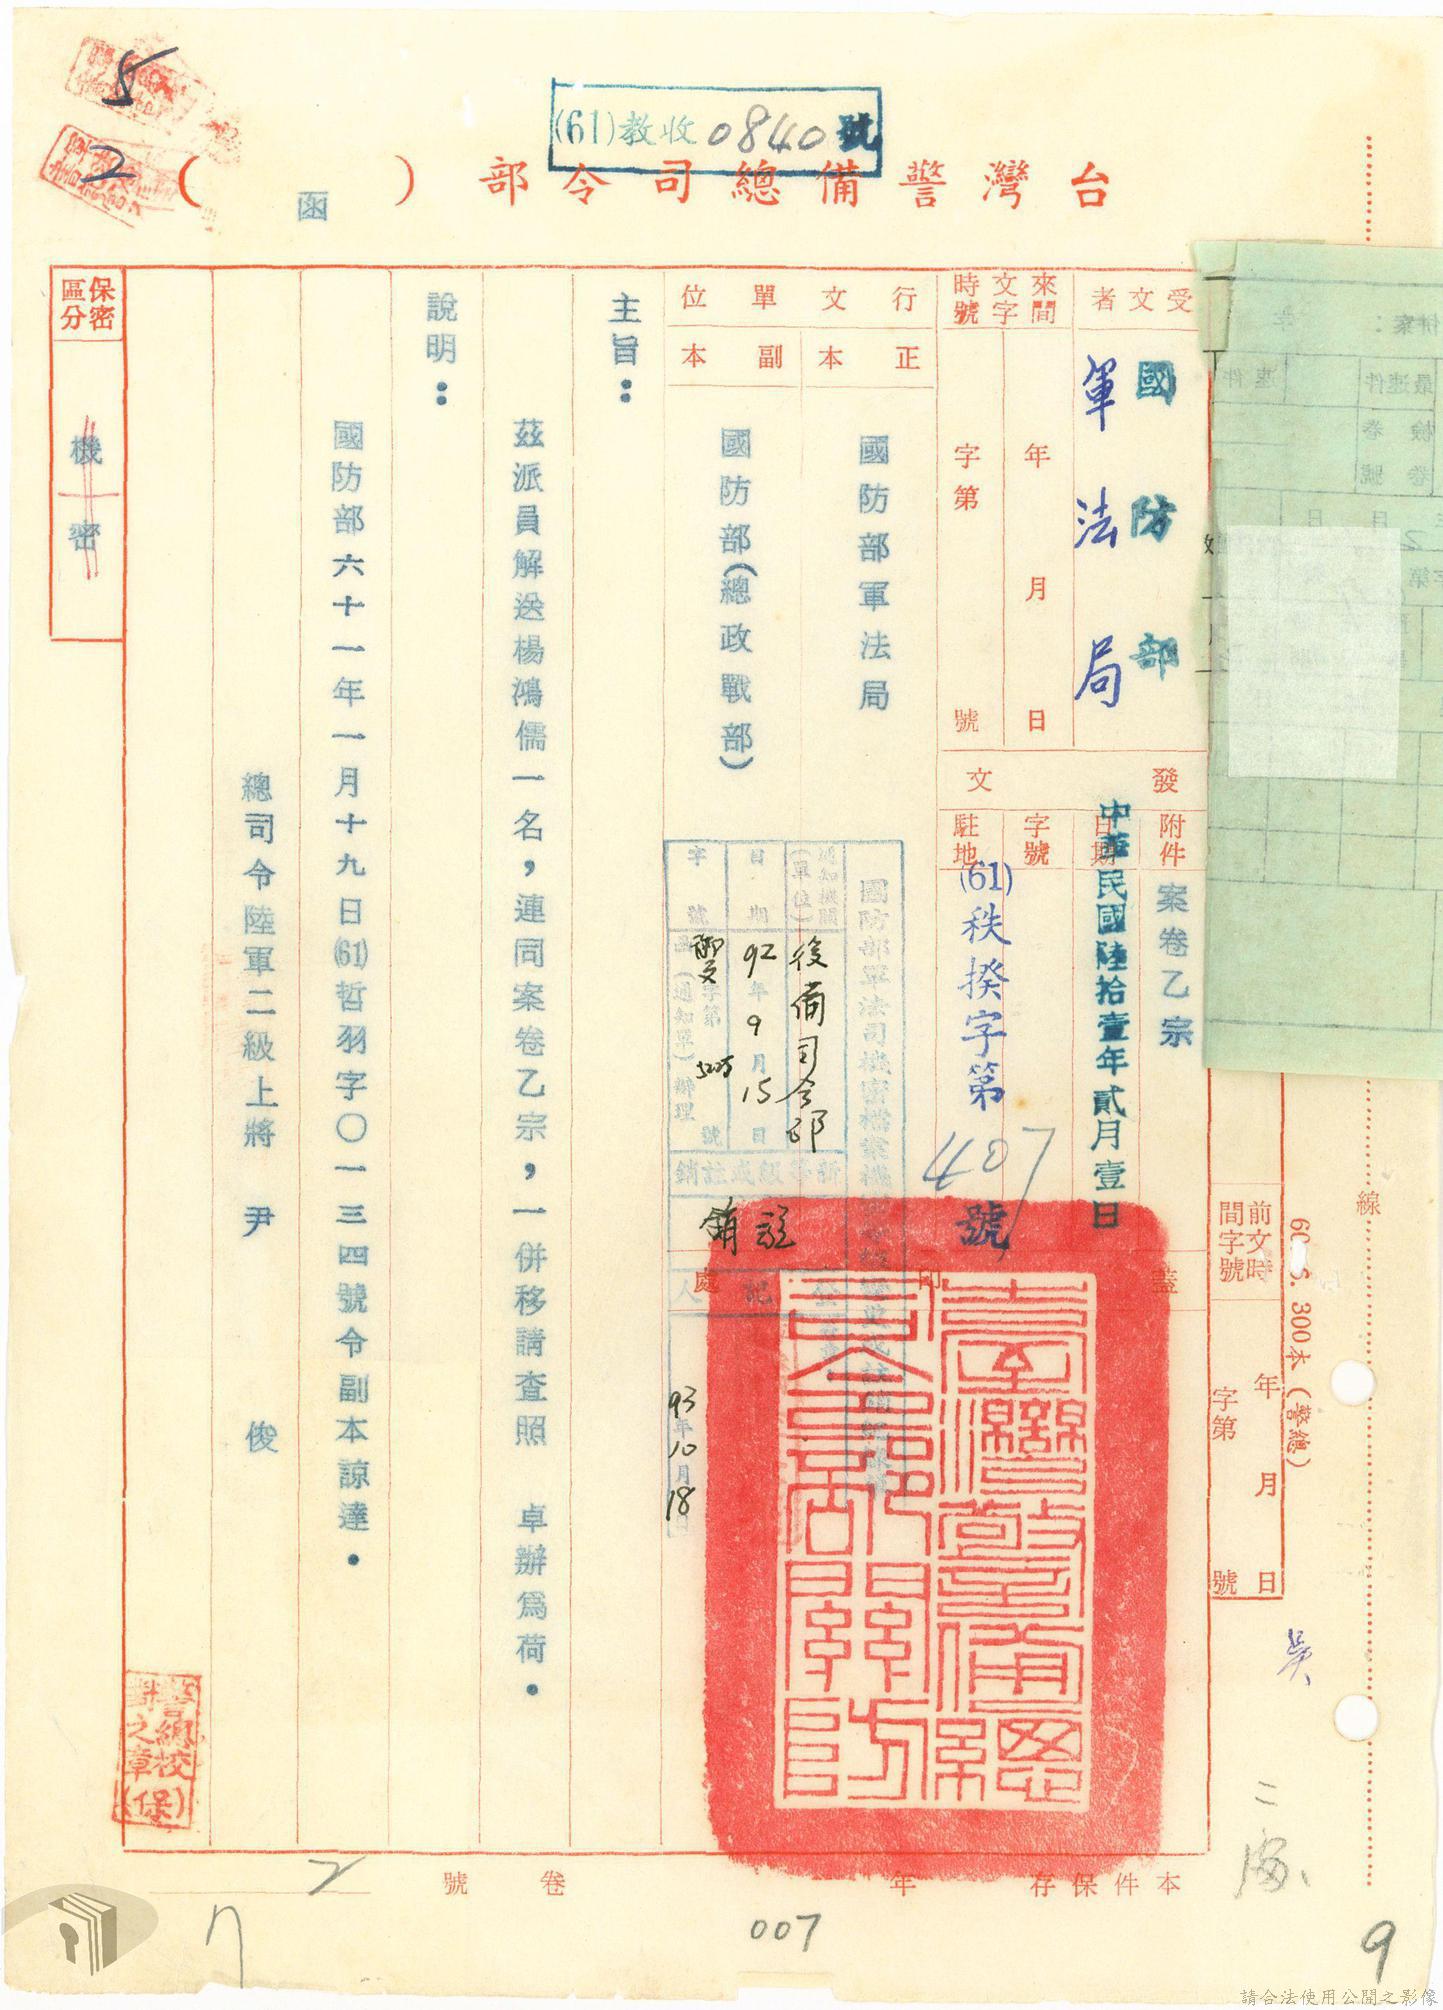 (61)教收0840號
台灣警備總司令部(函)
5
2
保密區分
機密
受文者
國防部
軍法局
來文時間字號
年月日
字第號
行文單位
正本
國防部軍法局
副本
國防部(總政戰部)
發文
附件
案卷乙宗
日期
中華民國陸拾壹年貳月壹日
字號
(61)秩揆字第407號
駐地
蓋印處
主旨：
茲派員解送楊鴻儒一名，連同案卷乙宗，一併移請查照　卓辦為荷。
說明：
國防部六十一年一月十九日(61)哲羽字〇一三四號令副本諒達。
總司令陸軍二級上將　尹　俊
通知機關(單位)
後備司令部
日期
92年9月15日
字號
字第
號
(通知單)辦理
註銷
登記人
93年10月18日
臺灣警備總司令部關防
警總校對之章(保)
前文時間字號
年月日
字第號
300本(警總)
線
吳
二
本件保存年
卷號
007
9
請合法使用公開之影像